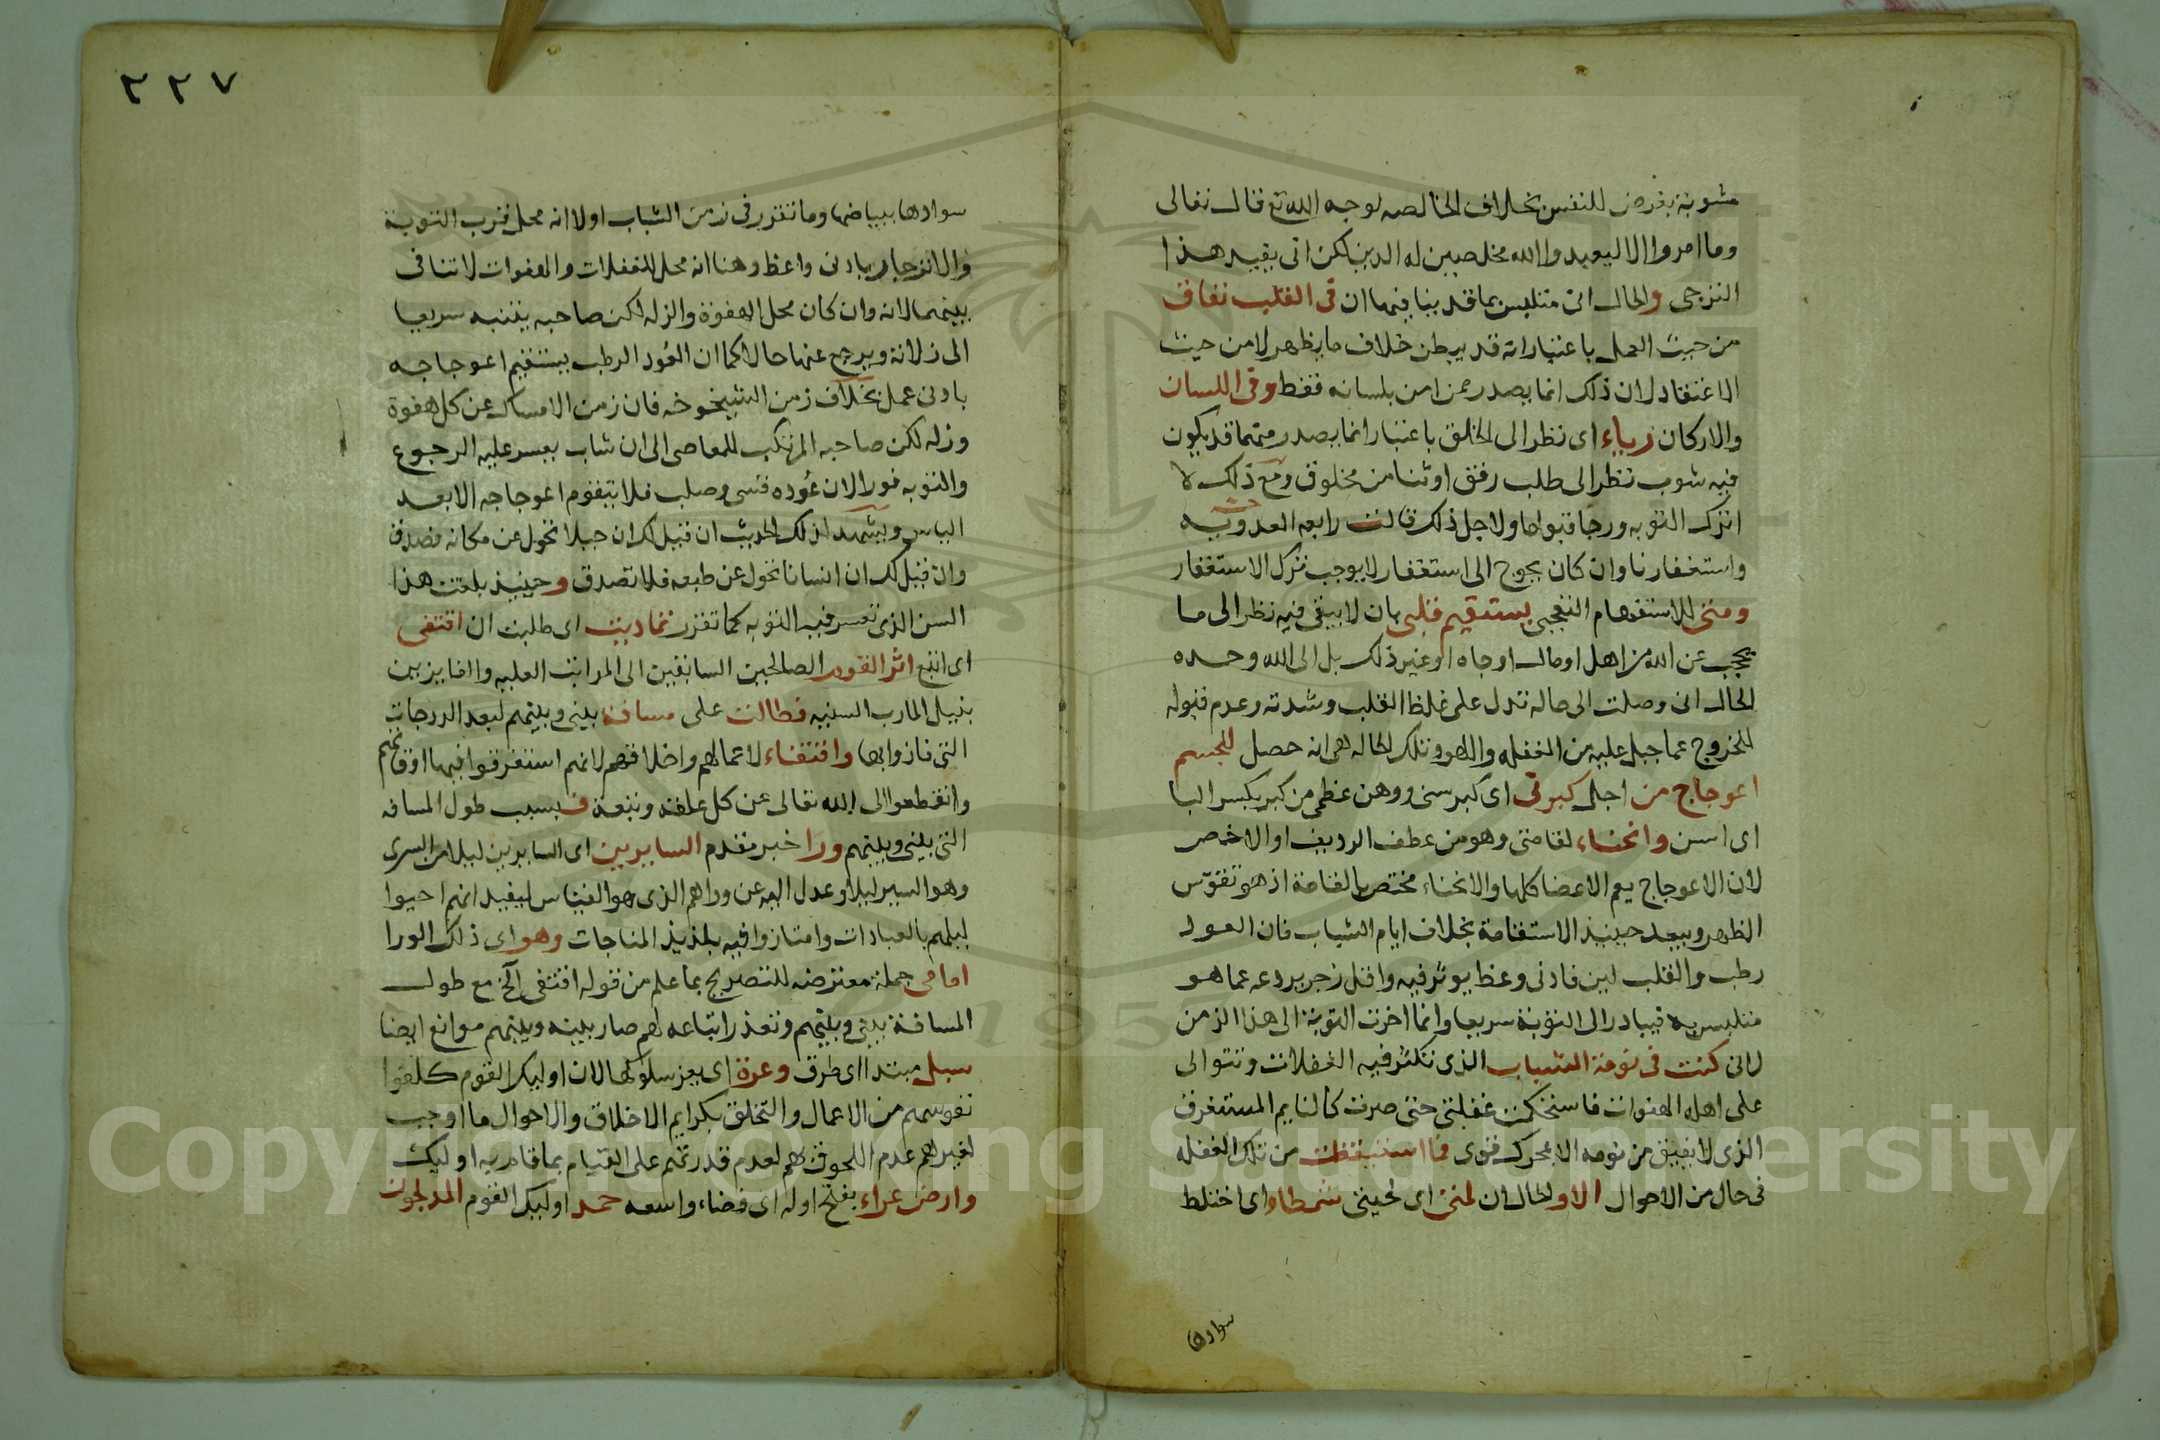 مشوبة بغرض للنفس بخلاف الخالصه لوجه الله تع قال تعالى
وما امروا الا ليعبدوا الله مخلصين له الدين لكن اتى بقيد هذا
الترجى والحال انى متلبس بما قد ينافيها ان فى القلب نفاق
من حيث العمل باعتبار انه قد يبطن خلاف ما يظهر لا من حيث
الاعتقاد لان ذلك انما يصدر ممن امن بلسانه فقط وفى اللسان
والاركان رياء اى نظر الى الخلق باعتبار انما يصدر منهما قد يكون
فيه شوب نظر الى طلب رفق او ثنا من مخلوق ومع ذلك لا
اترك التوبه ورجا قبولها ولاجل ذلك قالت رابعه العدويه
واستغفارنا وان كان يحوج الى استغفار لا يوجب ترك الاستغفار
ومتى للاستفهام التعجبى يستقيم قلبى بان لا يبقى فيه نظر الى ما
يحجب عن الله من اهل او مال او جاه او غير ذلك بل الى الله وحده
الحال انى وصلت الى حاله تدل على غلظ القلب وشدته وعدم قبوله
للخروج عما جبل عليه من الغفله واللهو وتلك الحاله هى انه حصل للجسم
اعوجاج من اجل كبرتى اى كبر سنى ووهن عظمى من كبر بكسر البا
اى اسن وانحناء لقامتى وهو من عطف الرديف او الاخص
لان الاعوجاج يعم الاعضا كلها والانحناء مختص بالقامة اذ هو تقوس
الظهر ويبعد حينيذ الاستقامة بخلاف ايام الشباب فان العود
رطب والقلب لين فادنى وعظ يوثر فيه واقل زجر يردعه عما هو
متلبس به فيبادر الى التوبة سريعا وانما اخرت التوبة الى هذا الزمن
لانى كنت فى نومة الشباب الذى تكثر فيه الغفلات وتتوالى
على اهله الهفوات فاستحكمت غفلتى حتى صرت كالنايم المستغرق
الذى لا يفيق من نومه الا بمحرك قوى فما استيقظت من تلك الغفله
فى حال من الاحوال الا والحال ان لمتى اى لحيتى شمطاء اى اختلط
سوادها
٢٢٧
سوادها ببياضها وما تقرر فى زمن الشباب اولا انه محل قرب التوبة
والانزجار بادنى واعظ وهنا انه محل للغفلات والهفوات لا تنافى
بينهما لانه وان كان محل الهفوة والزله لكن صاحبه يتنبه سريعا
الى زلاته ويرجع عنها حالا كما ان العود الرطب يستقيم اعوجاجه
بادنى عمل بخلاف زمن الشيخوخه فان زمن الامساك عن كل هفوة
وزله لكن صاحبه المرتكب للمعاصى الى ان شاب يعسر عليه الرجوع
والتوبه فورا لان عوده قسى وصلب فلا يتقوم اعوجاجه الا بعد
الياس ويشهد لذلك الحديث ان قيل لك ان جبلا تحول عن مكانه فصدق
وان قيل لك ان انسانا تحول عن طبعه فلا تصدق وحينيذ بلغت هذا
السن الذى تعسر فيه التوبه كما تقرر تماديت اى طلبت ان اقتفى
اى اتبع اثر القوم الصالحين السابقين الى المراتب العليه والفايزين
بنيل المارب السنيه فطالت على مسافة بينى وبينهم لبعد الدرجات
التى فازوا بها واقتفاء لاعمالهم واخلاقهم لانهم استغرقوا فيها اوقاتهم
وانقطعوا الى الله تعالى عن كل علقة وتبعة فبسبب طول المسافه
التى بينى وبينهم ورا خبر مقدم السايرين اى السايرين ليلا من السرى
وهو السير ليلا وعدل اليه عن وراهم الذى هو القياس ليفيد انهم احيوا
ليلهم بالعبادات وامتازوا فيه بلذيذ المناجات وهو اى ذلك الورا
امامى جملة معترضه للتصريح بما علم من قوله اقتفى الخ مع طول
المسافة بينى وبينهم وتعذر اتباعه لهم صار بينه وبينهم موانع ايضا
سبل مبتدا اى طرق وعرة اى يعز سلوكها لان اوليك القوم كلفوا
نفوسهم من الاعمال والتخلق بكرايم الاخلاق والاحوال ما اوجب
لغيرهم عدم اللحوق بهم لعدم قدرتهم على القيام بما قام به اوليك
وارض عراء بفتح اوله اى فضاء واسعه حمد اوليك القوم المدلجون
Copyright © King Saud University
1957